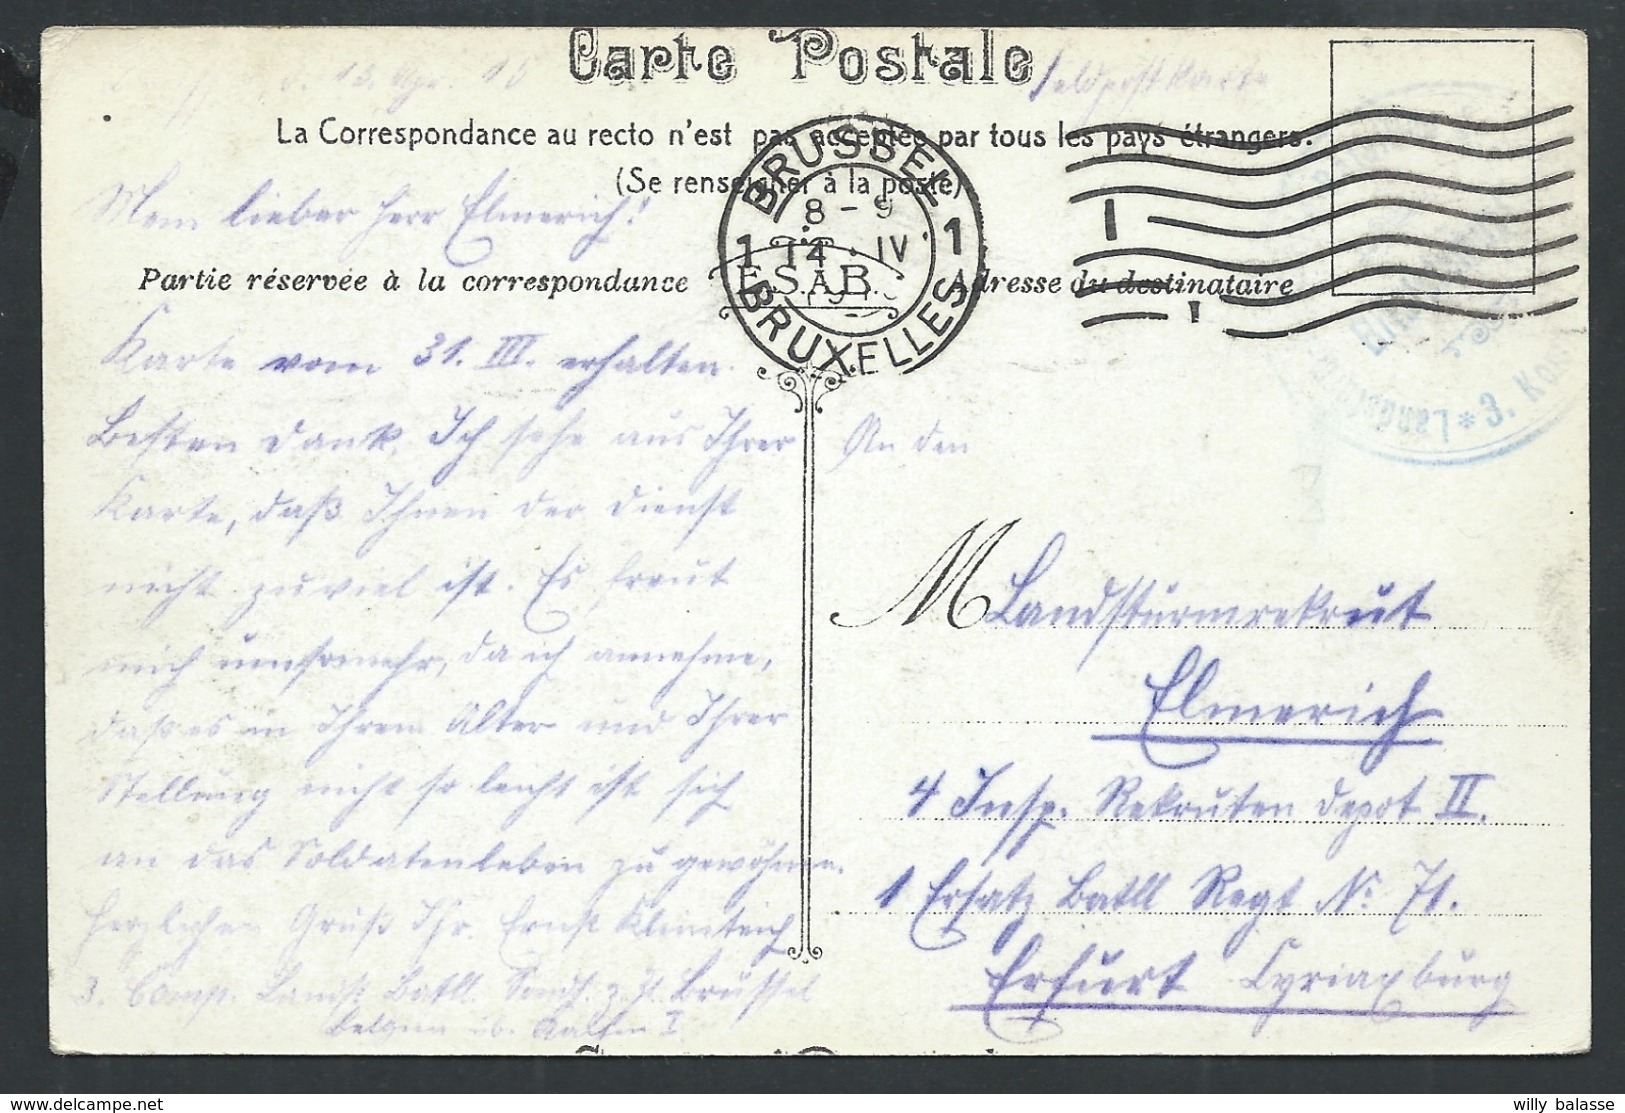 Carte Postale
13. Apr. 15
Feldpostkarte
La Correspondance au recto n'est pas acceptée par tous les pays étrangers.
(Se renseigner à la poste)
BRUSSEL 1
8 - 9
14 · IV
BRUXELLES 1
E.S.A.B.
Partie réservée à la correspondance
Adresse du destinataire
Mein lieber Herr Elmerich!
Karte vom 31. III. erhalten.
Besten Dank. Ich sehe aus Ihrer
Karte, daß Ihnen der Dienst
nicht zuviel ist. Es freut
mich umsomehr, da ich annehme,
daß es in Ihrem Alter und Ihrer
Stellung nicht so leicht ist sich
an das Soldatenleben zu gewöhnen.
Herzlichen Gruß Ihr Ernst
3. Comp. Landst. Batll. Brüssel
3. Ko
An den
M Landsturmrekrut
Elmerich
4 Insp. Rekruten Depot II.
1 Ersatz Batll Regt Nr. 71.
Erfurt Cyriaxburg
willy balasse